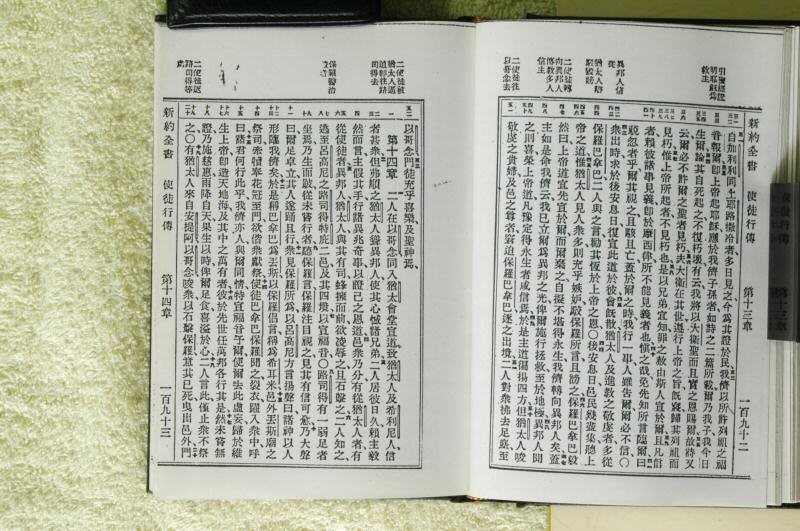 新約全書 使徒行傳 第十三章 一百九十二
引聖經證
明耶穌為
救主
異邦人信
從
猶太人
毀謗
二使徒轉
向異邦人
傳教多人
信主
二使徒往
以哥念
自加利利同上耶路撒冷者多日見之今為其證於民我儕以所許列祖之福
音報爾即上帝起耶穌應於我儕子孫者如詩之二篇所載爾乃我子我今日
生爾論其自死起之不復朽壞有云我將以大衛聖而且實之恩賜爾故詩又
云爾必不許爾之聖者見朽夫大衛在其世遵行上帝之旨既寢歸其列祖而
見朽惟上帝所起者不見朽也是以兄弟宜知罪之赦由斯人宣於爾且凡信
者賴彼諸事見義即於摩西律所不能見義者也慎之哉免先知所言臨爾曰
藐忽者乎爾其視之且駭且亡蓋於爾之時我行一事人雖告爾爾必不信〇
衆出時求於後安息日復宣此道於彼會既散猶太人及進教之敬虔者多從
保羅巴拿巴二人與之言勸其恆於上帝之恩〇後安息日邑民幾盡集聽上
帝之道惟猶太人見人衆多則充乎嫉妒駁保羅所言且謗之保羅巴拿巴毅
然曰上帝道宜先宣於爾而爾棄之自擬不堪得永生我儕轉向異邦人矣蓋
主如是命我儕云我已立爾為異邦之光俾爾施行拯救至於地極異邦人聞
之則喜榮上帝道凡豫定得永生者咸信焉於是主道傳揚四方但猶太人唆
敬虔之貴婦及邑之尊者窘迫保羅巴拿巴逐之出境二人對衆拂去足塵至
新約全書 使徒行傳 第十四章 一百九十三
二使徒被
猶太人逼
迫逃往路
司得去
保羅醫治
跛者
二使徒等
路司得
以哥念門徒充乎喜樂及聖神焉
第十四章 二人在以哥念同入猶太會堂宣道致猶太人及希利尼人信
者甚衆但弗順之猶太人聳異邦人使其心慽諸兄弟二人居彼日久賴主毅
然而言主假其手行諸異兆奇事以證己之恩道邑衆乃分有從猶太人者有
從使徒者異邦人猶太人與其有司蜂擁而前欲凌辱之且石擊之二人知之
逃至呂高尼之路司得特庇二邑及其四境以宣福音〇路司得有一弱足者
坐焉乃生而跛從未嘗行者聽保羅言保羅注目視之見其有信可愈乃大聲
曰爾足卓立其人遂踊且行衆見保羅所為以呂高尼方言揚聲曰諸神以人
形臨我儕矣於是稱巴拿巴為丟斯以保羅倡言稱為希耳米邑外丟斯廟之
祭司牽犢奉花冠至門欲偕衆獻祭使徒巴拿巴保羅聞之裂衣躍入衆中呼
曰諸君何行此乎我儕亦人與爾同情特宣福音予爾使爾去此虛妄歸於維
生上帝即造天地海及其中之萬有者彼於先世任萬邦各行其是然未嘗無
證乃施慈惠雨降自天果生以時俾爾足食喜溢於心二人言此僅止衆不祭
之〇有猶太人來自安提阿以哥念唆衆以石擊保羅意其已死曳出邑外門